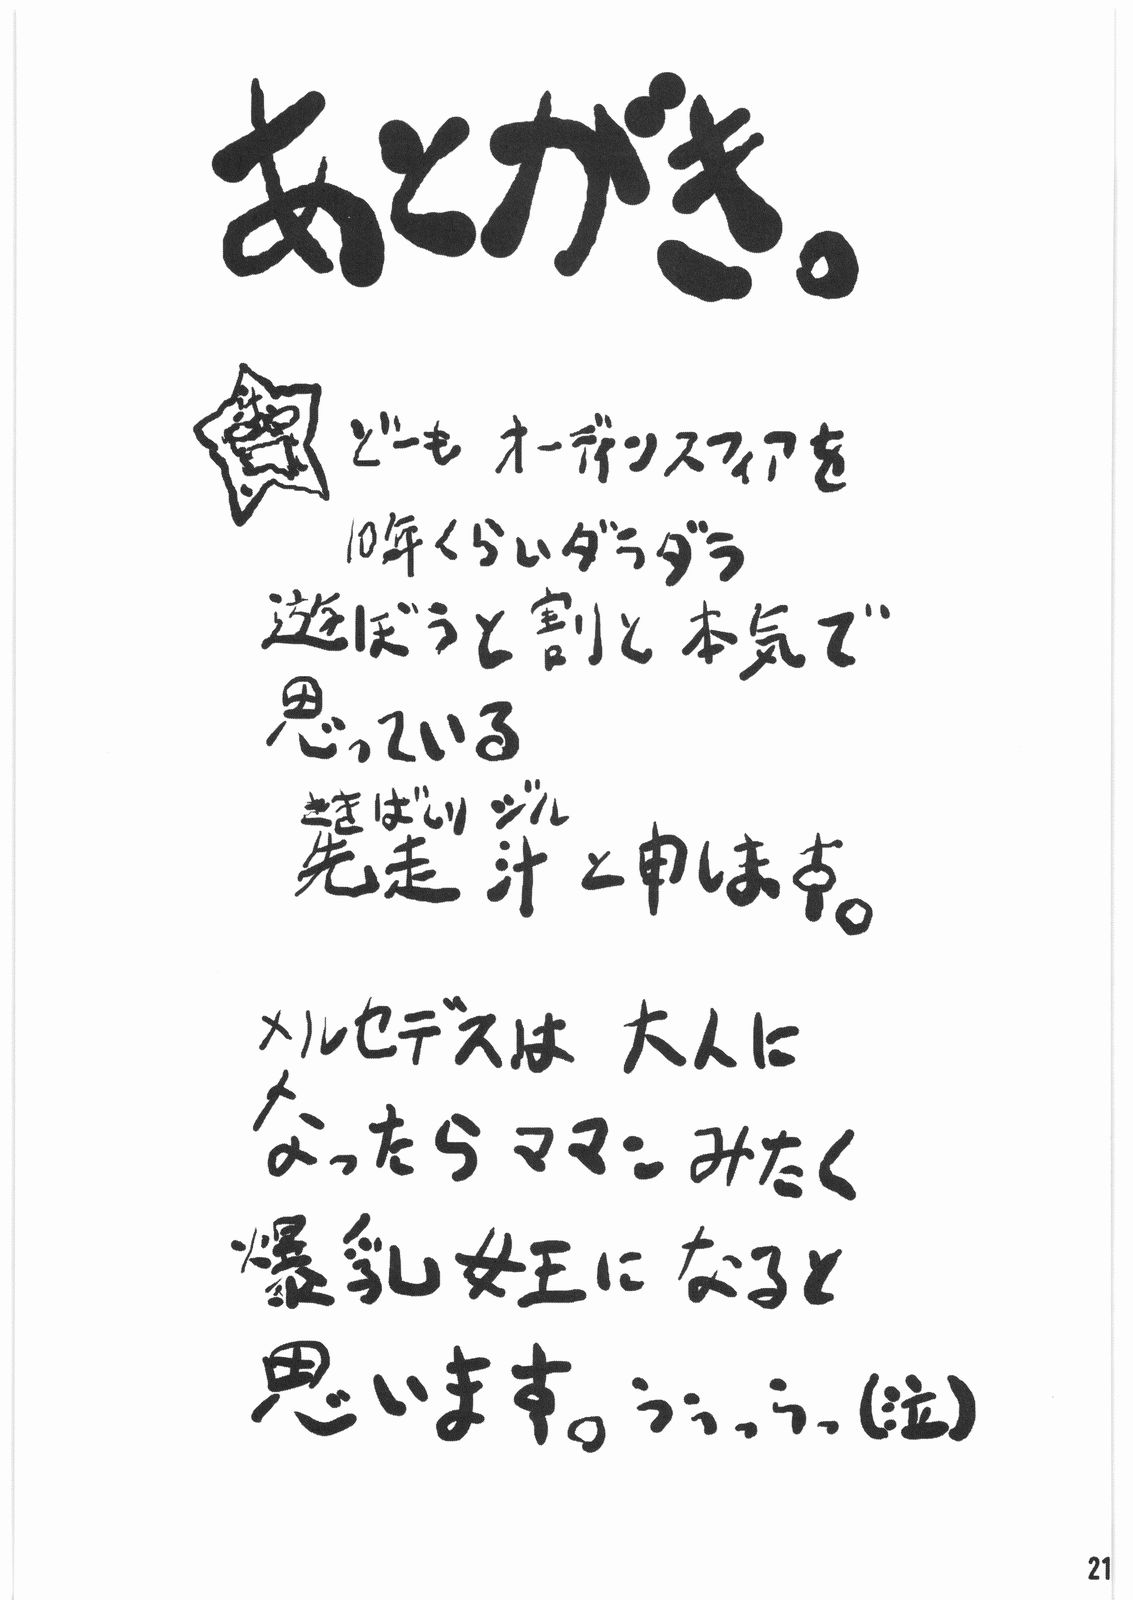 あとがき。
どーも オーディンスフィアを
10年くらいダラダラ
遊ぼうと割と本気で
思っている
さきばしり ジル
先走 汁 と申します。
メルセデスは 大人に
なったら ママン みたく
爆乳 女王に なると
思います。 ううっうっ(泣)
21